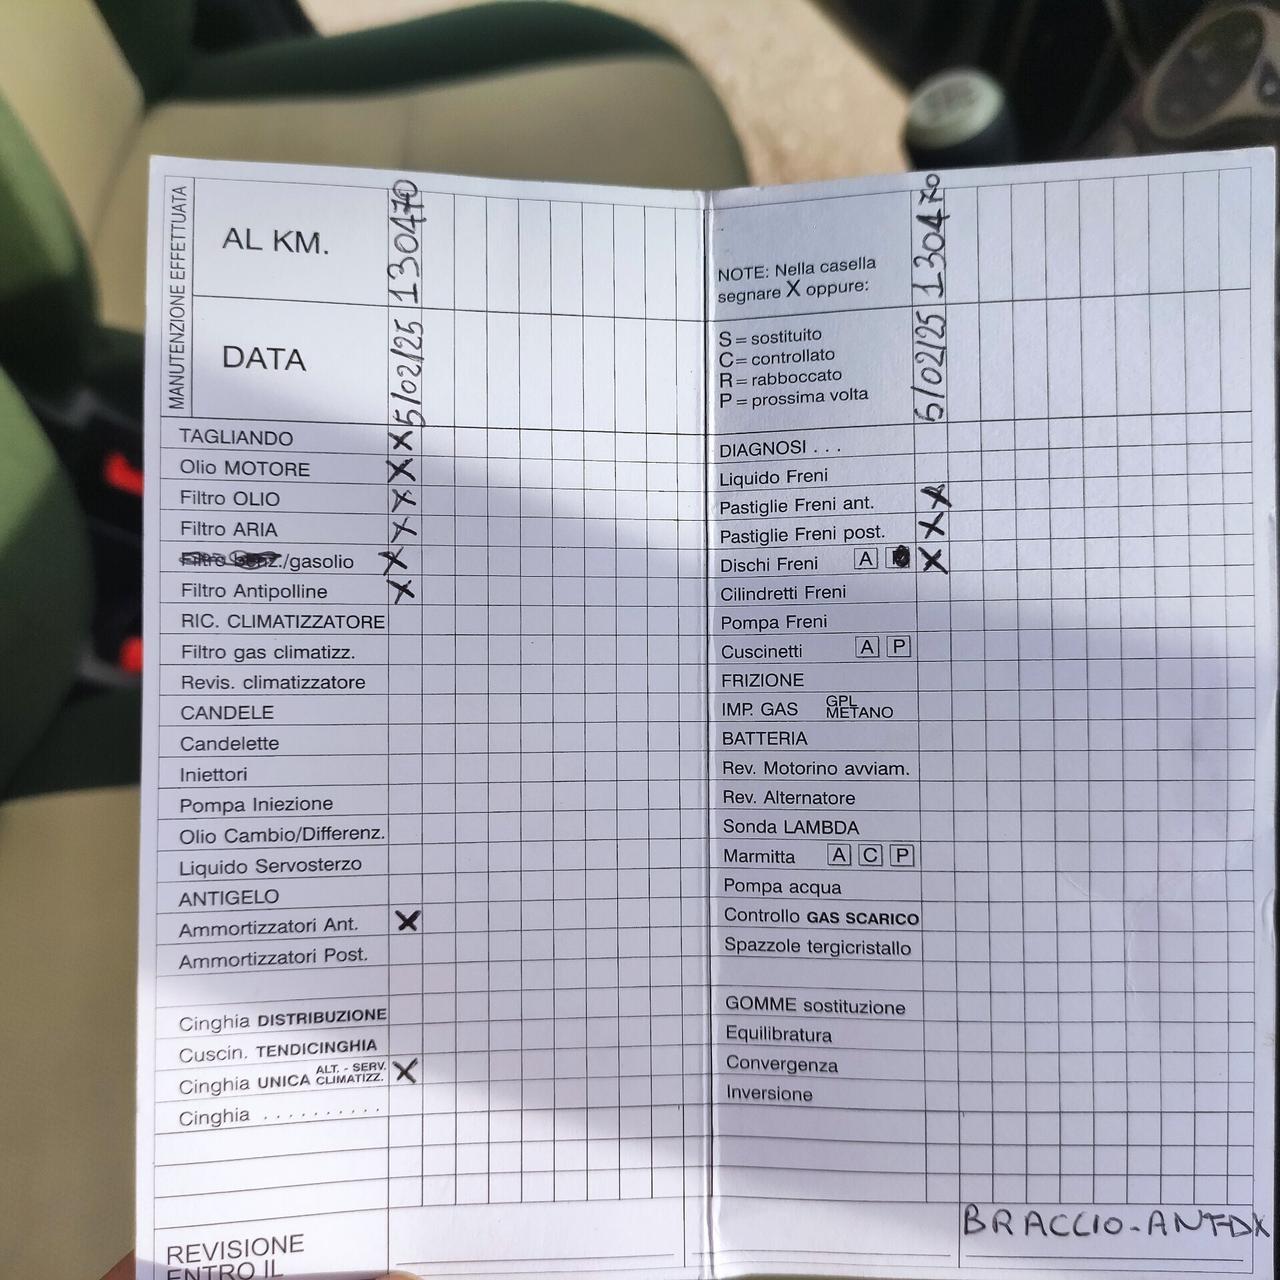 MANUTENZIONE EFFETTUATA
AL KM. 130470
DATA 5/02/25
TAGLIANDO X
Olio MOTORE X
Filtro OLIO X
Filtro ARIA X
Filtro benz./gasolio X
Filtro Antipolline X
RIC. CLIMATIZZATORE
Filtro gas climatizz.
Revis. climatizzatore
CANDELE
Candelette
Iniettori
Pompa Iniezione
Olio Cambio/Differenz.
Liquido Servosterzo
ANTIGELO
Ammortizzatori Ant. X
Ammortizzatori Post.
Cinghia DISTRIBUZIONE
Cuscin. TENDICINGHIA
Cinghia UNICA ALT. - SERV. CLIMATIZZ. X
Cinghia . . . . . . . . . .
REVISIONE
ENTRO IL
NOTE: Nella casella
segnare X oppure:
130470
S = sostituito
C = controllato
R = rabboccato
P = prossima volta
5/02/25
DIAGNOSI . . .
Liquido Freni
Pastiglie Freni ant. X
Pastiglie Freni post. X
Dischi Freni A X
Cilindretti Freni
Pompa Freni
Cuscinetti A P
FRIZIONE
IMP. GAS GPL METANO
BATTERIA
Rev. Motorino avviam.
Rev. Alternatore
Sonda LAMBDA
Marmitta A C P
Pompa acqua
Controllo GAS SCARICO
Spazzole tergicristallo
GOMME sostituzione
Equilibratura
Convergenza
Inversione
BRACCIO-ANT-DX